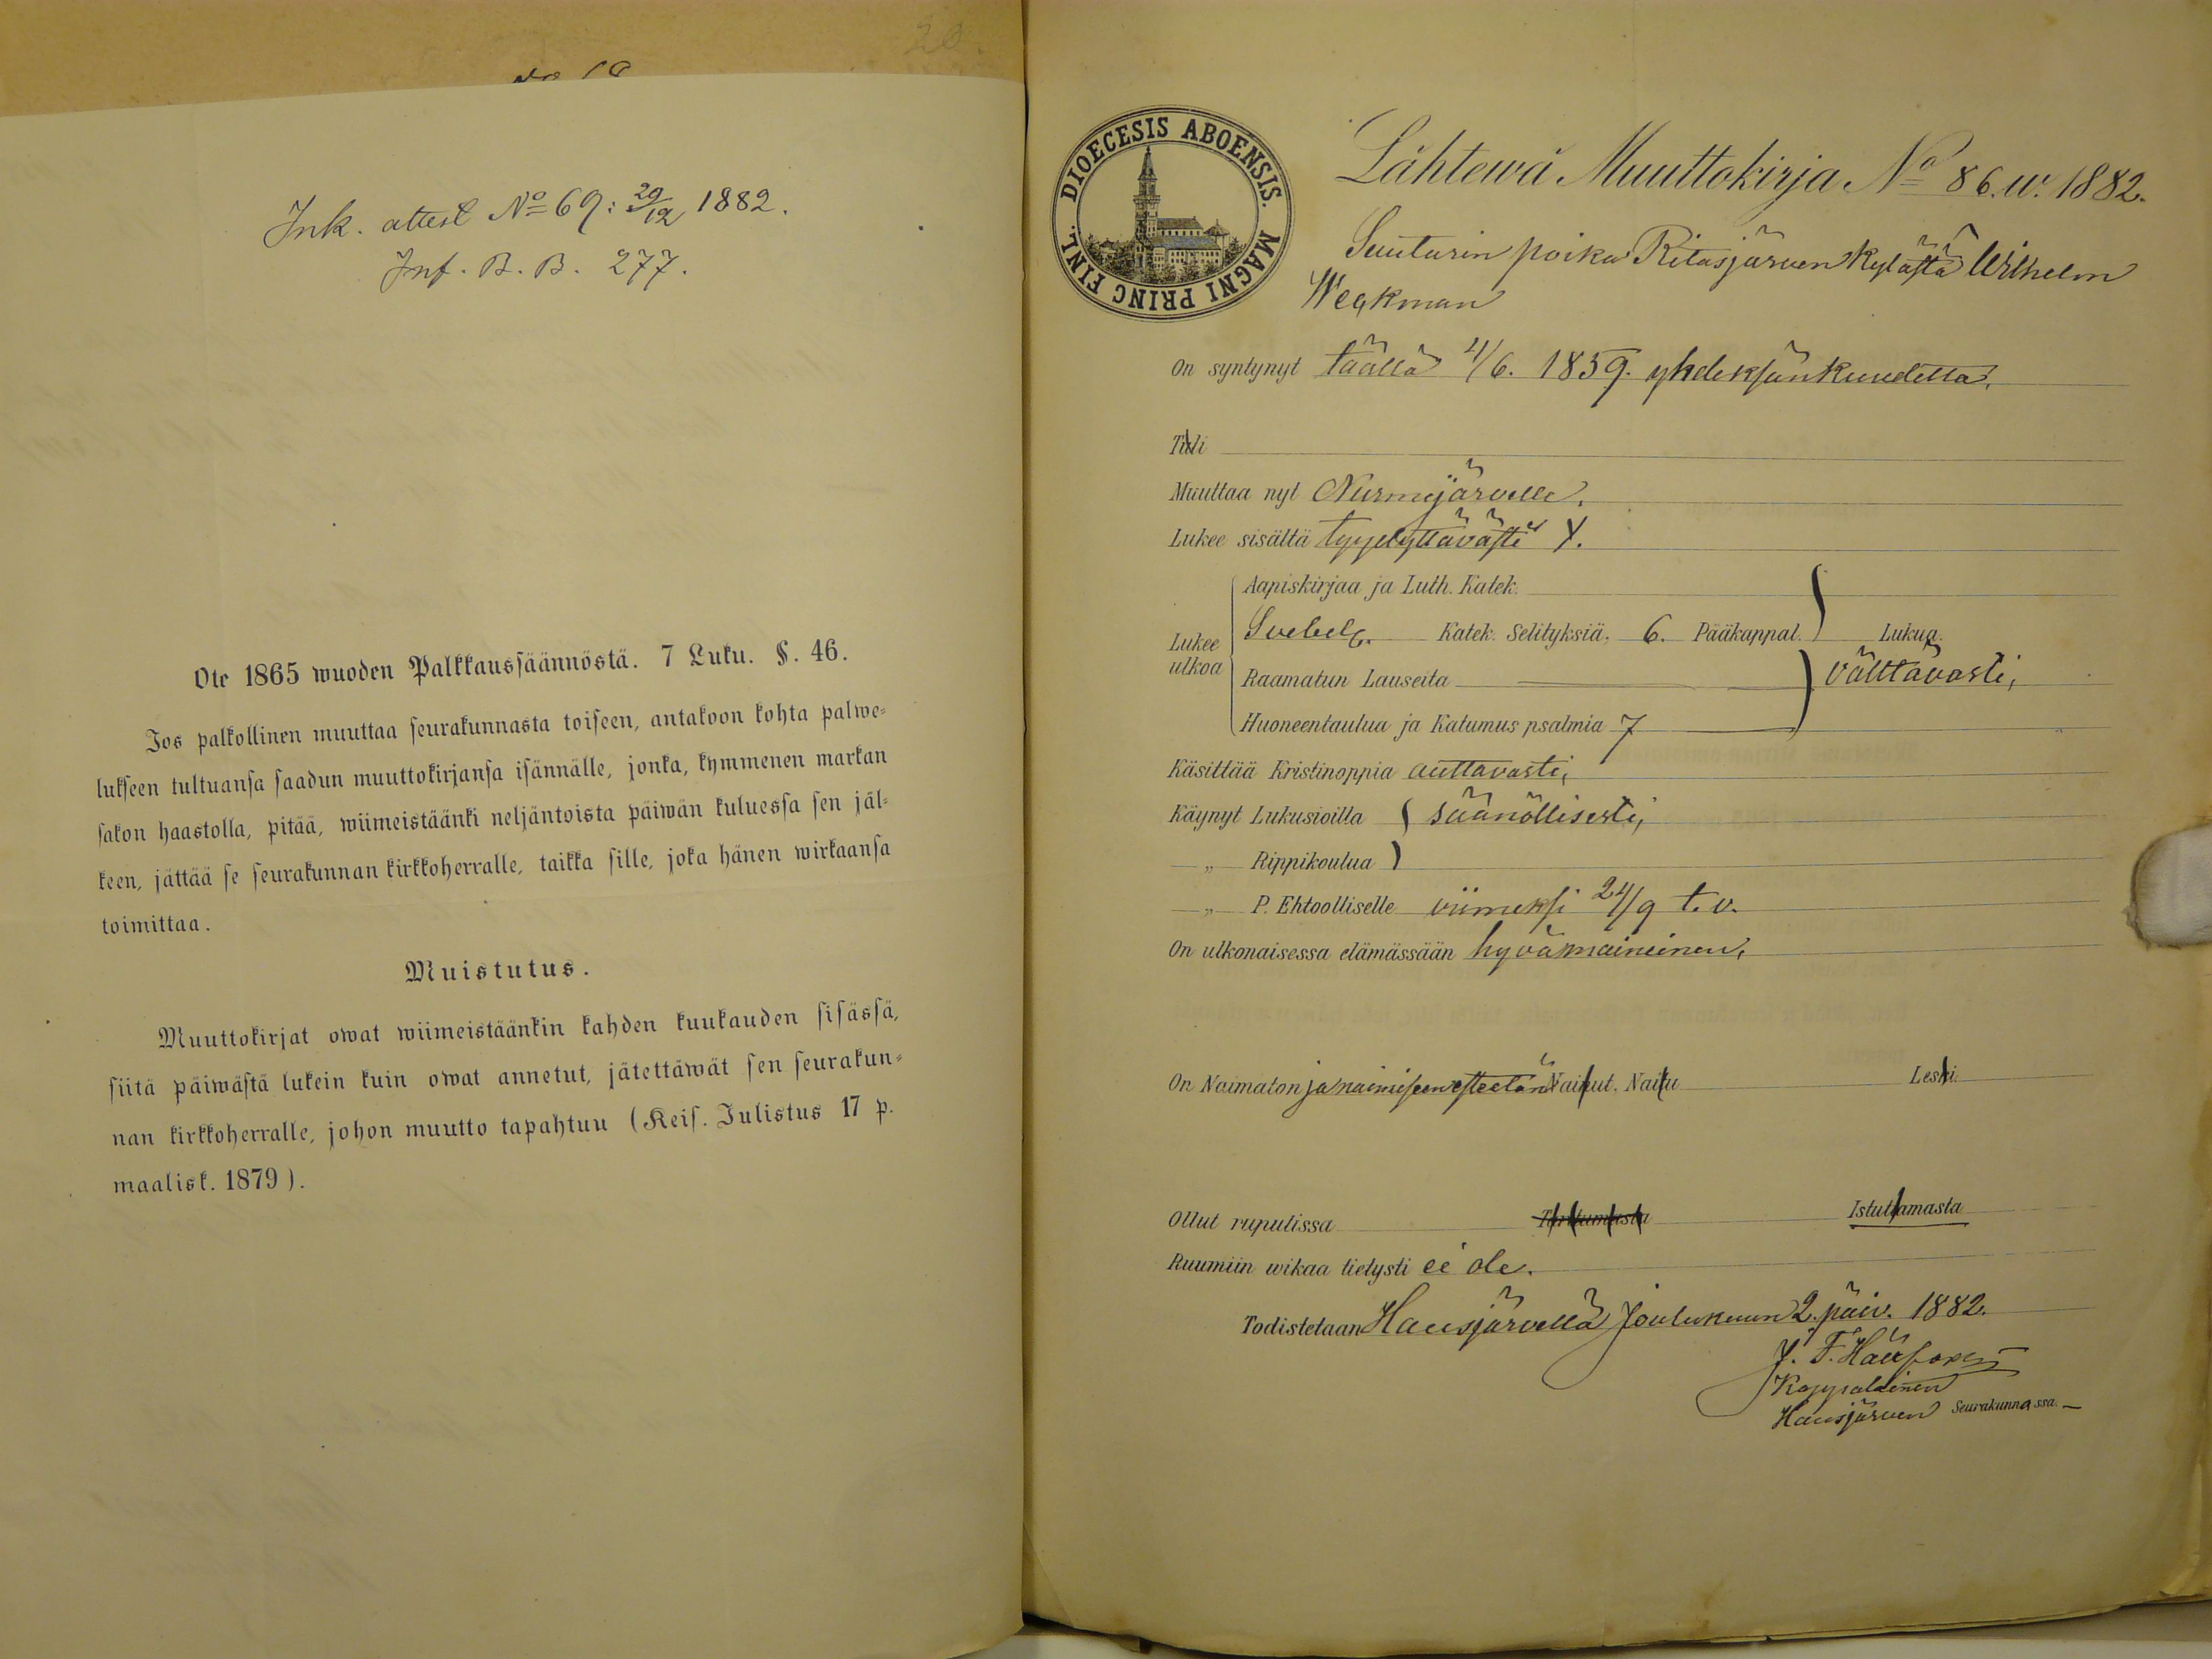 20.
No 19
Ink. attest No 69: 29/12 1882.
Inf. B. B. 277.
Ote 1865 wuoden Palkkaussäännöstä. 7 Luku. §. 46.
Jos palkollinen muuttaa seurakunnasta toiseen, antakoon kohta palwe-
lukseen tultuansa saadun muuttokirjansa isännälle, jonka, kymmenen markan
sakon haastolla, pitää, wiimeistäänki neljäntoista päiwän kuluessa sen jäl-
keen, jättää se seurakunnan kirkkoherralle, taikka sille, joka hänen wirkaansa
toimittaa.
Muistutus.
Muuttokirjat owat wiimeistäänkin kahden kuukauden sisässä,
siitä päiwästä lukein kuin owat annetut, jätettäwät sen seurakun-
nan kirkkoherralle, johon muutto tapahtuu (Keis. Julistus 17 p.
maalisk. 1879).
DIOECESIS ABOENSIS. MAGNI PRINC FINL.
Lähtewä Muuttokirja No 86. w. 1882.
Suutarin poika Ritasjärven kylästä Wilhelm
Wegkman
On syntynyt täällä 4/6. 1859. yhdeksänkuudetta,
Tuli
Muuttaa nyt Nurmijärvelle,
Lukee sisältä tyydyttävästi
Aapiskirjaa ja Luth. Katek.
Lukee ulkoa Svebel. Katek. Selityksiä, 6. Pääkappal. Lukua.
Raamatun Lauseita välttävästi,
Huoneentaulua ja Katumus psalmia 7
Käsittää Kristinoppia auttavasti,
Käynyt Lukusioilla säänöllisesti,
—„— Rippikoulua
—„— P. Ehtoolliselle viimeksi 24/9 t. v.
On ulkonaisessa elämässään hyvämaineinen,
On Naimaton ja naimiseen esteetön Nainut. Naitu Leski
Ollut rupulissa Tarttumasta Istuttamasta
Ruumiin wikaa tietysti ei ole.
Todistetaan Hausjärvellä Joulukuun 2. päiv. 1882.
J. F.
Kappalainen
Hausjärven Seurakunnassa.